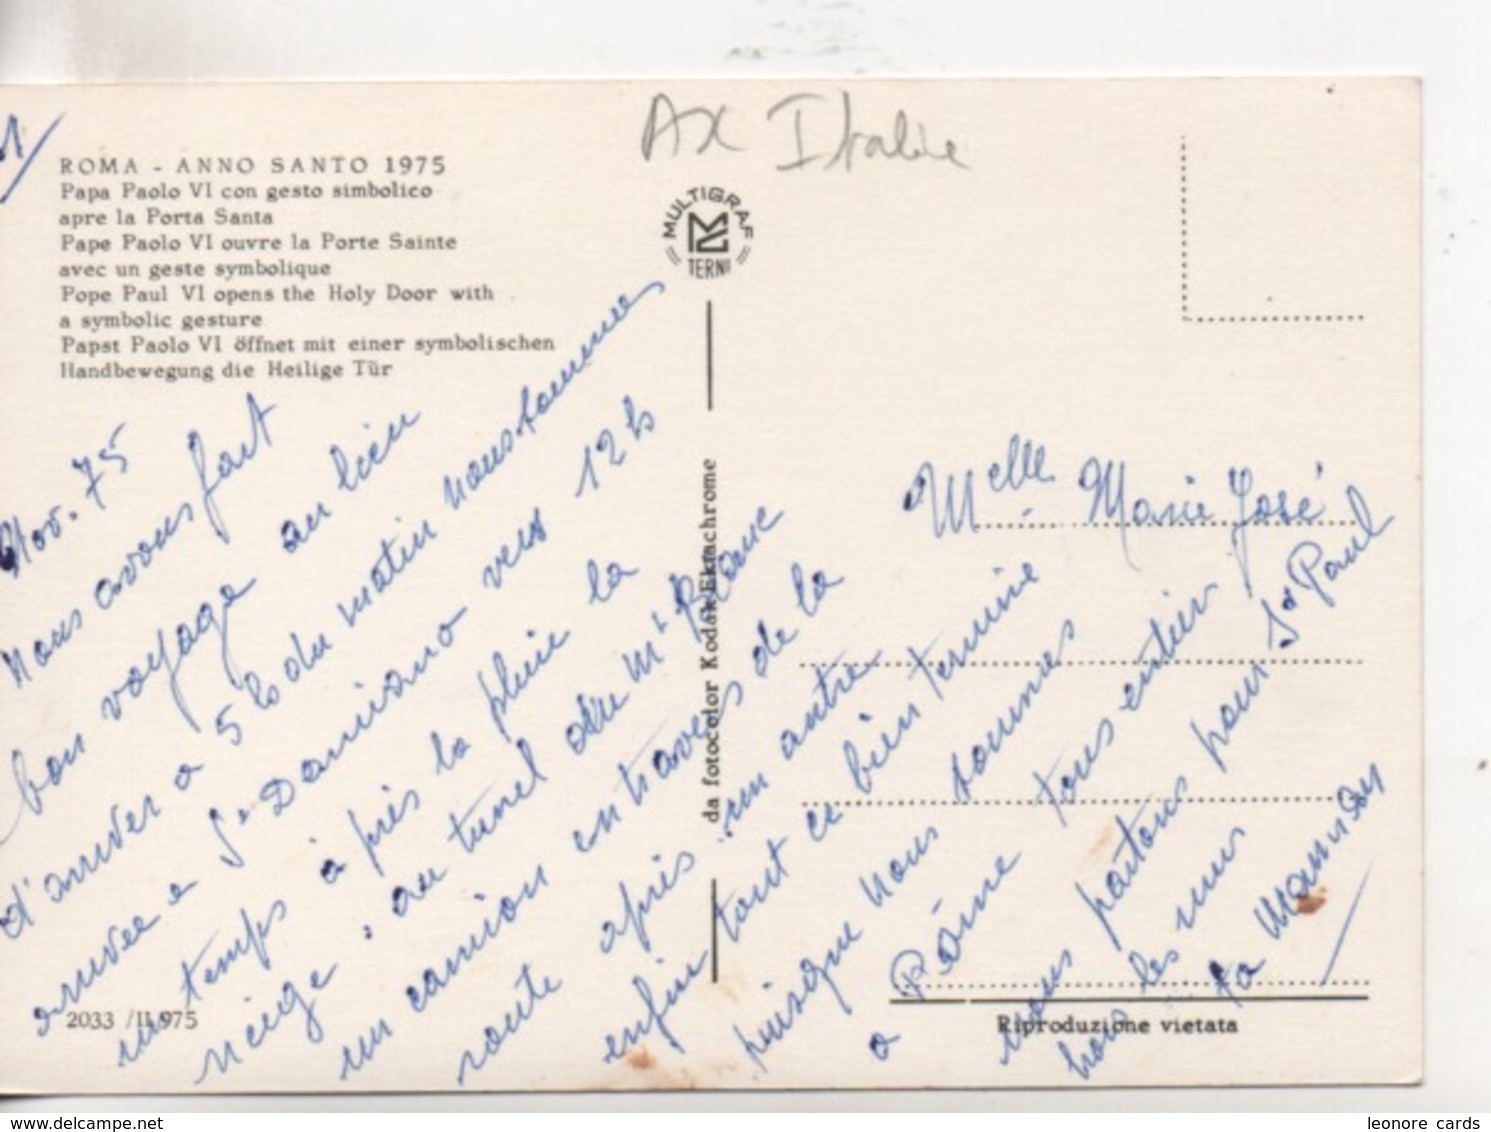 Ax Italie
ROMA - ANNO SANTO 1975
Papa Paolo VI con gesto simbolico
apre la Porta Santa
Pape Paolo VI ouvre la Porte Sainte
avec un geste symbolique
Pope Paul VI opens the Holy Door with
a symbolic gesture
Papst Paolo VI öffnet mit einer symbolischen
Handbewegung die Heilige Tür
MULTIGRAF
TERNI
da fotocolor Kodak Ektachrome
Nov. 75
Nous avons fait
bon voyage au lieu
d'arriver a 5 h du matin nous sommes
arrivée a St Damiano vers 12 h
un temps à près la pluie la
neige, au tunel du Mt Blanc
un camion en travers de la
route après un autre
enfin tout ce bien termine
puisque nous sommes
a Rôme tous entier
nous partons pour St Paul
hors les murs
ta Maman
Melle Marie José
2033 /II 975
Riproduzione vietata
leonore cards